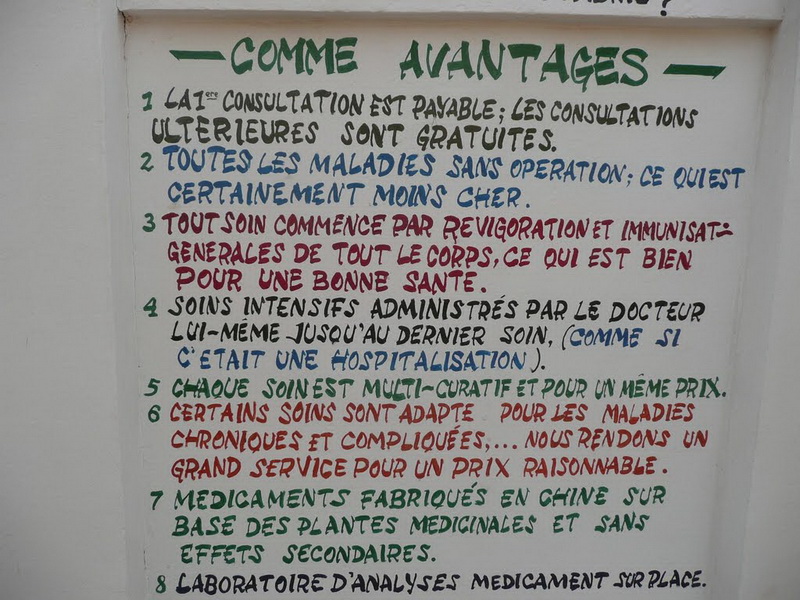 — COMME AVANTAGES —
1 LA 1ere CONSULTATION EST PAYABLE; LES CONSULTATIONS
ULTERIEURES SONT GRATUITES.
2 TOUTES LES MALADIES SANS OPERATION; CE QUI EST
CERTAINEMENT MOINS CHER.
3 TOUT SOIN COMMENCE PAR REVIGORATION ET IMMUNISAT-
GENERALES DE TOUT LE CORPS, CE QUI EST BIEN
POUR UNE BONNE SANTE.
4 SOINS INTENSIFS ADMINISTRÉS PAR LE DOCTEUR
LUI-MÊME JUSQU'AU DERNIER SOIN, (COMME SI
C'ETAIT UNE HOSPITALISATION).
5 CHAQUE SOIN EST MULTI-CURATIF ET POUR UN MÊME PRIX.
6 CERTAINS SOINS SONT ADAPTE POUR LES MALADIES
CHRONIQUES ET COMPLIQUÉES,... NOUS RENDONS UN
GRAND SERVICE POUR UN PRIX RAISONNABLE.
7 MEDICAMENTS FABRIQUÉS EN CHINE SUR
BASE DES PLANTES MEDICINALES ET SANS
EFFETS SECONDAIRES.
8 LABORATOIRE D'ANALYSES MEDICAMENT SUR PLACE.